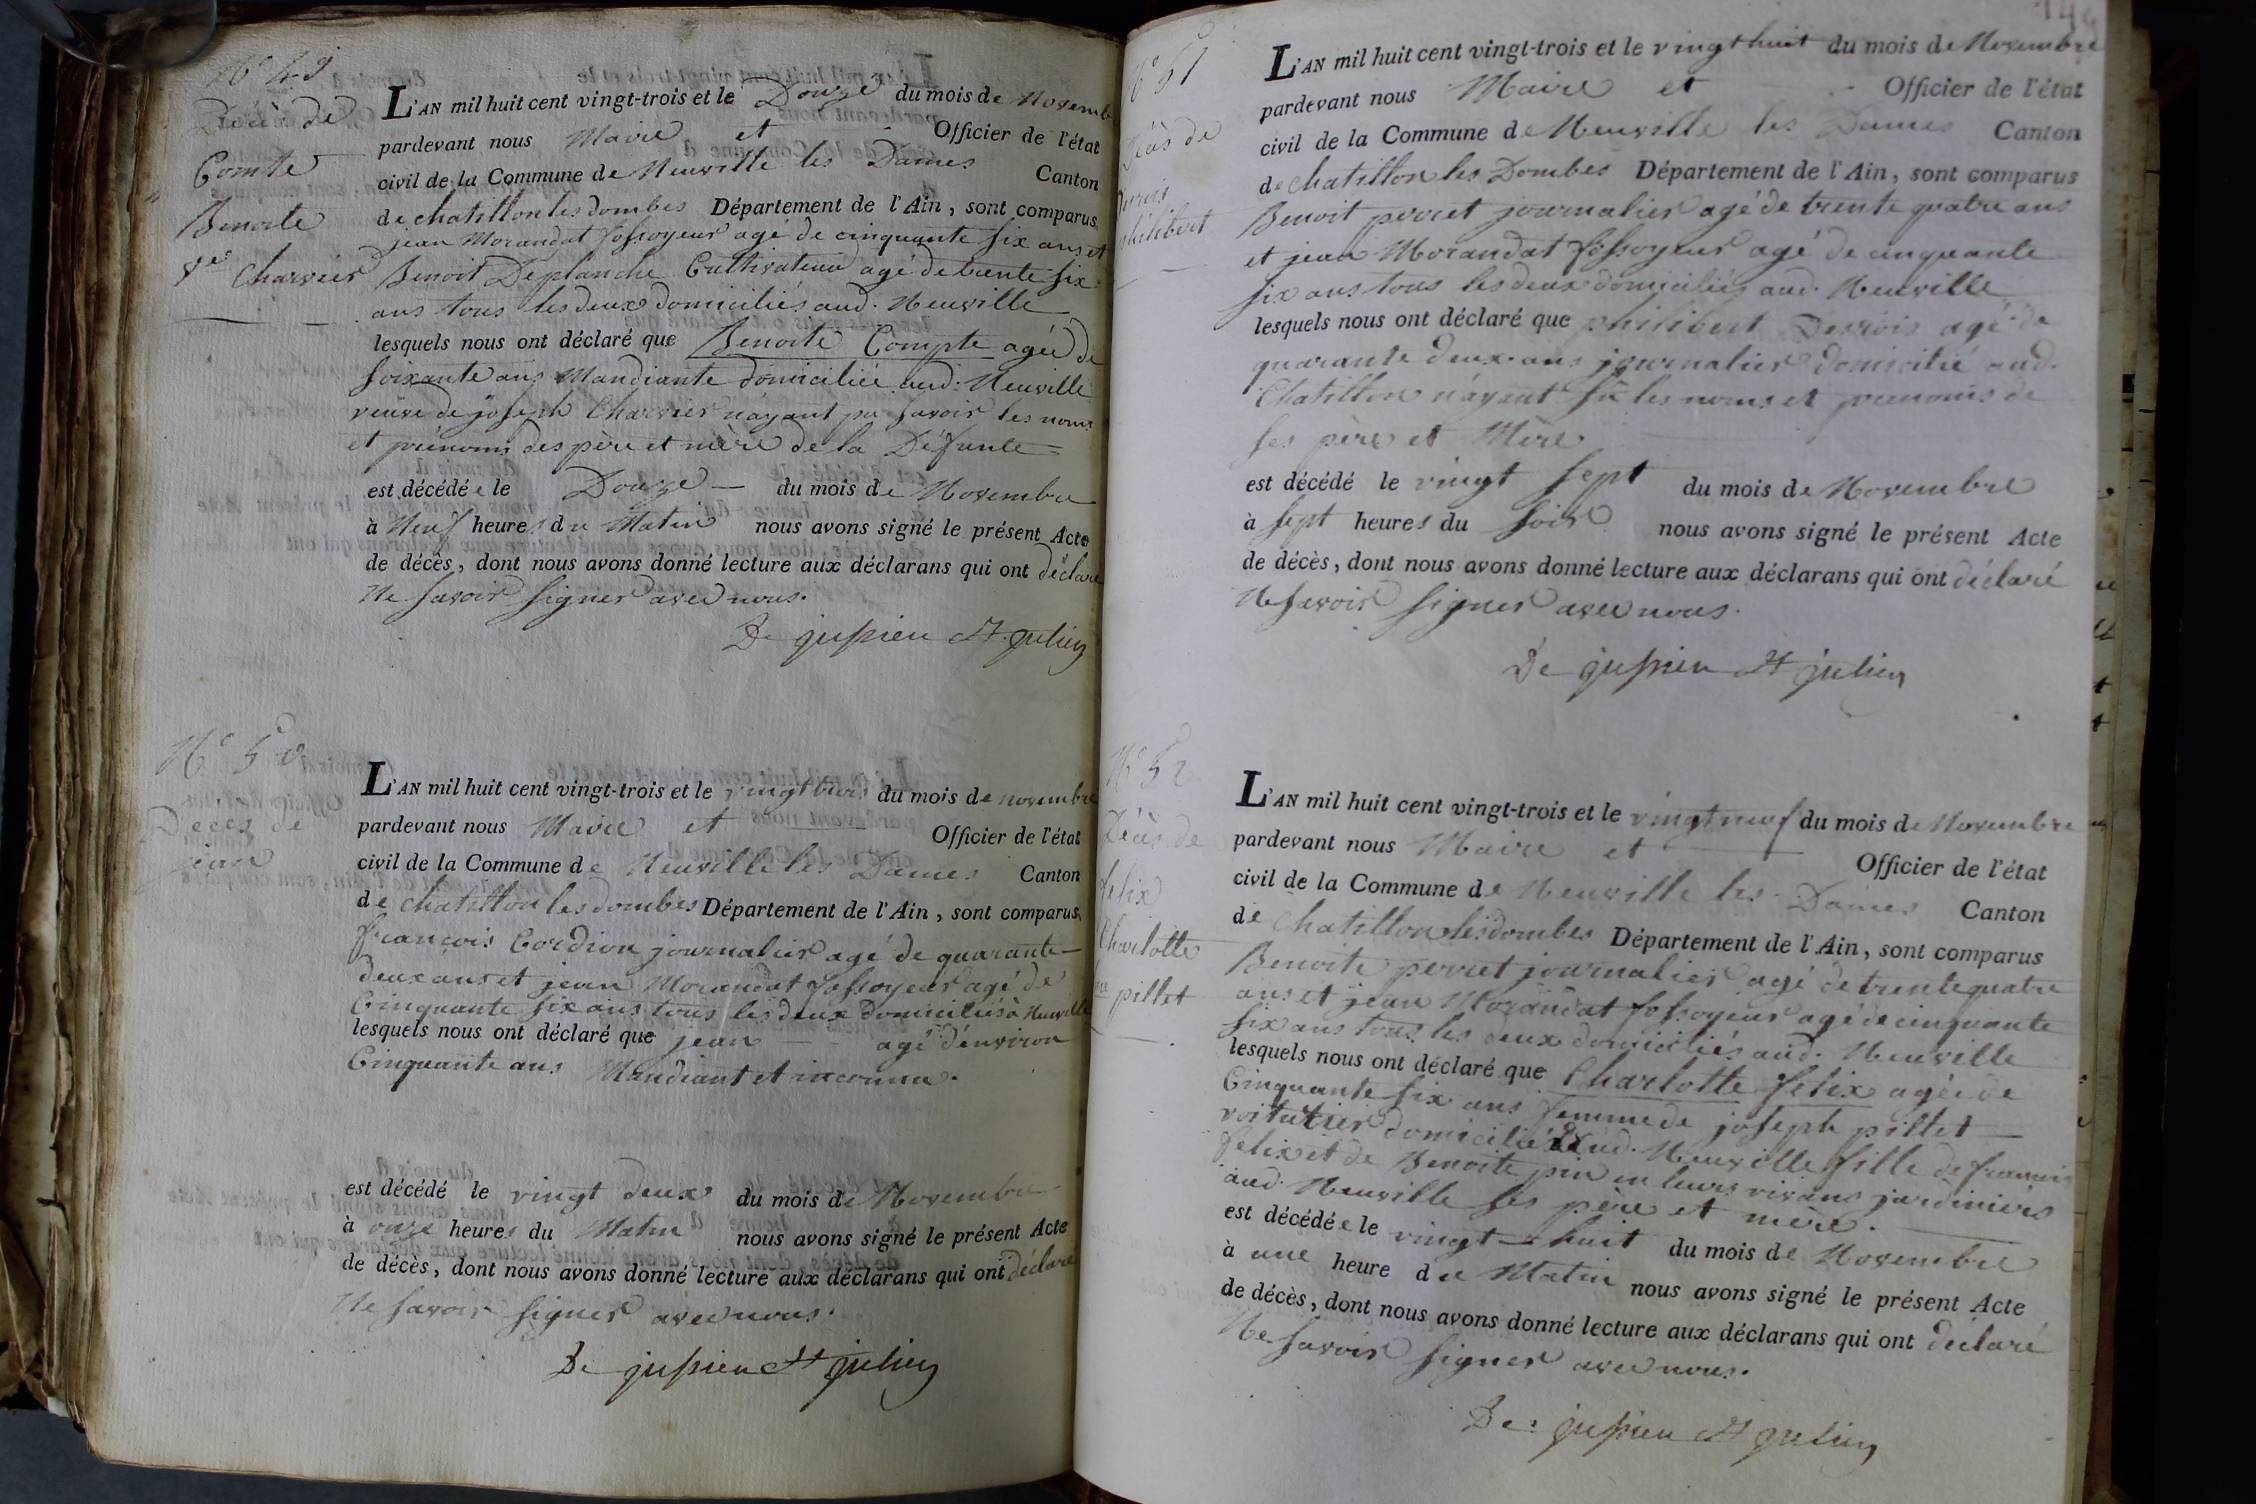 N° 49
Décès de
Comte
Benoite
Ve Charvier
L'AN mil huit cent vingt-trois et le Douze du mois de Novemb
pardevant nous Maire et - Officier de l'état
civil de la Commune de Neuville les Dames Canton
de chatillon les dombes Département de l'Ain, sont comparus
jean Morandat fossoyeur agé de cinquante six ans et
Benoit Deplanche Cultivateur agé de trente six
ans tous les deux domiciliés aud. Neuville
lesquels nous ont déclaré que Benoite Compte agée de
soixante ans Mandiante domiciliée aud. Neuville
veuve de joseph Charvier n'ayant pu savoir les noms
et prénoms des père et mère de la Défunte =
est décédée le Douze — du mois de Novembre
à Neuf heures du Matin nous avons signé le présent Acte
de décès, dont nous avons donné lecture aux déclarans qui ont déclaré
Ne savoir signer avec nous.
De jussieu St julien
N° 50
Décès de
jean
L'AN mil huit cent vingt-trois et le vingt trois du mois de novembre
pardevant nous Maire et — Officier de l'état
civil de la Commune de Neuville les Dames Canton
de chatillon les dombes Département de l'Ain, sont comparus
françois Cordion journalier agé de quarante —
deux ans et jean Morandat fossoyeur agé de
Cinquante six ans tous les deux domiciliés à Neuville
lesquels nous ont déclaré que jean — - agé d'environ
Cinquante ans Mandiant et inconnu.
est décédé le vingt deux du mois de Novembre
à onze heures du Matin nous avons signé le présent Acte
de décès, dont nous avons donné lecture aux déclarans qui ont déclaré
Ne savoir signer avec nous.
De jussieu St julien
N° 51
Décès de
philibert
L'AN mil huit cent vingt-trois et le vingt huit du mois de Novembre
pardevant nous Maire et - Officier de l'état
civil de la Commune de Neuville les Dames Canton
de chatillon les Dombes Département de l'Ain, sont comparus
Benoit perret journalier agé de trente quatre ans
et jean Morandat fossoyeur agé de cinquante
six ans tous les deux domiciliés aud. Neuville
lesquels nous ont déclaré que philibert agé de
quarante deux ans journalier domicilié aud.
Chatillon n'ayant sû les noms et prenoms de
ses père et Mère
est décédé le vingt sept du mois de Novembre
à sept heures du soir nous avons signé le présent Acte
de décès, dont nous avons donné lecture aux déclarans qui ont déclaré
Ne savoir signer avec nous.
De jussieu St julien
N° 52
Décès de
felix
Charlotte
pillet
L'AN mil huit cent vingt-trois et le vingt neuf du mois de Novembre
pardevant nous Maire et — Officier de l'état
civil de la Commune de Neuville les Dames Canton
de Chatillon les dombes Département de l'Ain, sont comparus
Benoite perret journalier agé de trente quatre
ans et jean Morandat fossoyeur agé de cinquante
six ans tous les deux domiciliés aud. Neuville
lesquels nous ont déclaré que Charlotte felix agée de
Cinquante six ans femme de joseph pillet —
voiturier domicilié aud. Neuville fille de francois
felix et de Benoite en leurs vivans jardiniers
aud. Neuville ses père et mère.
est décédée le vingt — huit du mois de Novembre
à une heure du Matin nous avons signé le présent Acte
de décès, dont nous avons donné lecture aux déclarans qui ont déclaré
Ne savoir signer avec nous.
De jussieu St julien